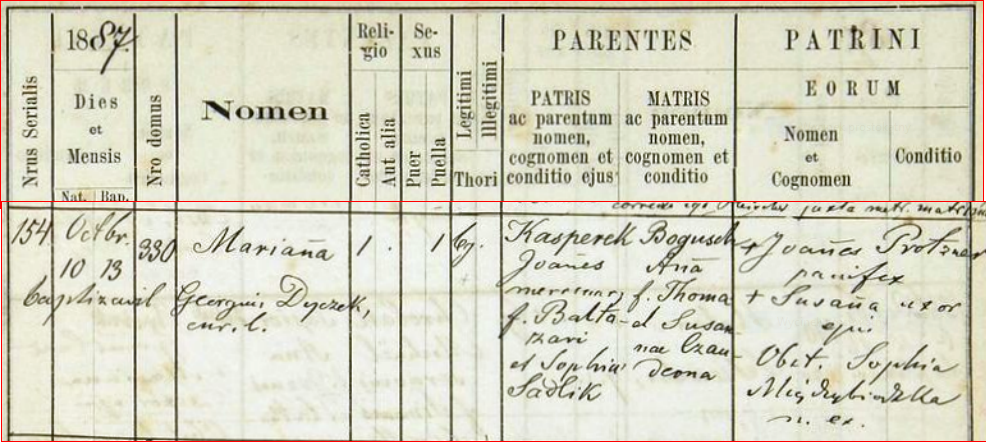 1887.
Nrus Serialis
Dies
et
Mensis
Nat. Bap.
Nro domus
Nomen
Religio
Catholica
Aut alia
Sexus
Puer
Puella
Legitimi
Illegitimi
Thori
PARENTES
PATRIS
ac parentum
nomen,
cognomen et
conditio ejus
MATRIS
ac parentum
nomen,
cognomen et
conditio
PATRINI
EORUM
Nomen
et
Cognomen
Conditio
juxta metr. matrim
154
Octbr.
10 13
baptizavit
330
Mariana
Georgius Dyczek,
cur. l.
1 .
1
lg.
Kasperek
Joanes
mercenar
f. Balta-
zari
et Sophia
Sadlik
Bogusch
Ana
f. Thoma
et Susan
nae Czau-
derna
+ Joanes Protzner
panifex
+ Susana uxor
ejus
Obst. Sophia
Międzybrodzka
n. ex.